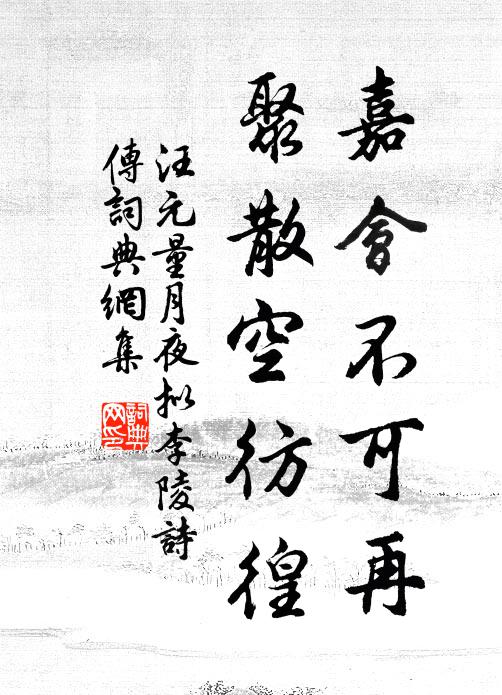 嘉會不可再
聚散空彷徨
汪元量月夜拟李陵詩
傳詞典網集
詞典網印